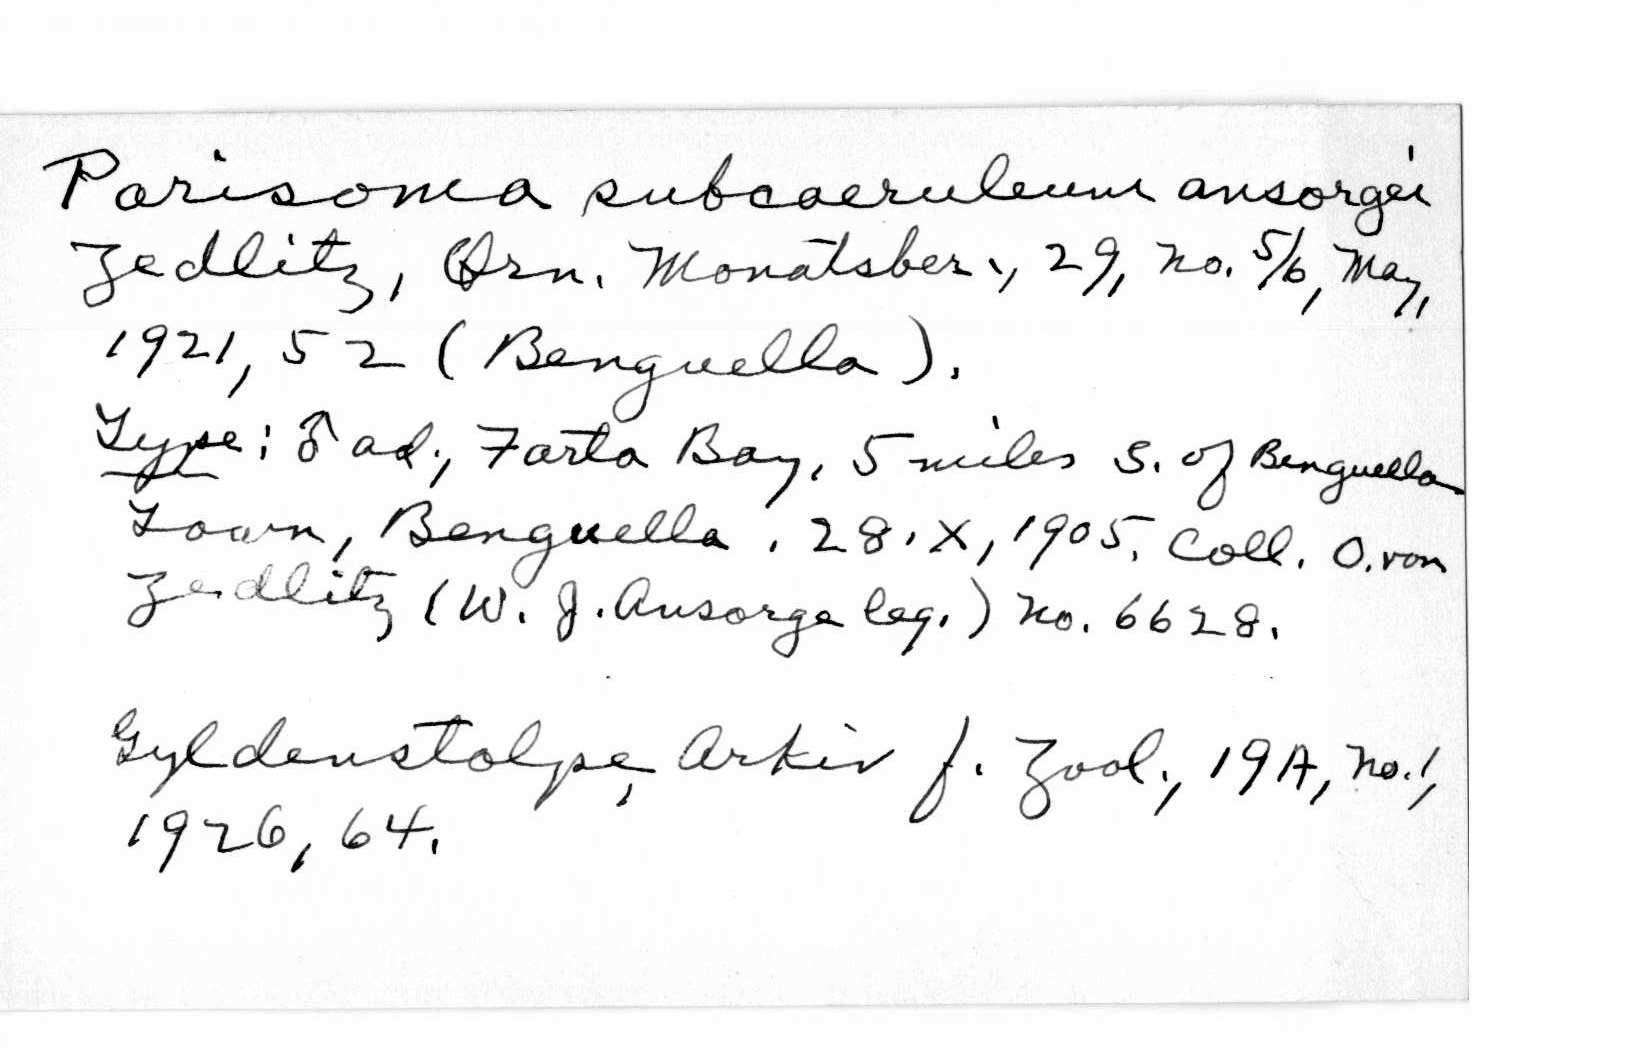 Parisoma subcaeruleum ansorgei
Zedlitz, Orn. Monatsber., 29, no. 5/6, May,
1921, 52 (Benguella).
Type: ♂ ad., Farta Bay, 5 miles S. of Benguella
Town, Benguella. 28.X, 1905. Coll. O. von
Zedlitz (W. J. Ansorge leg.) no. 6628.
Gyldenstolpe, Arkiv f. Zool., 19A, no. 1,
1926, 64.